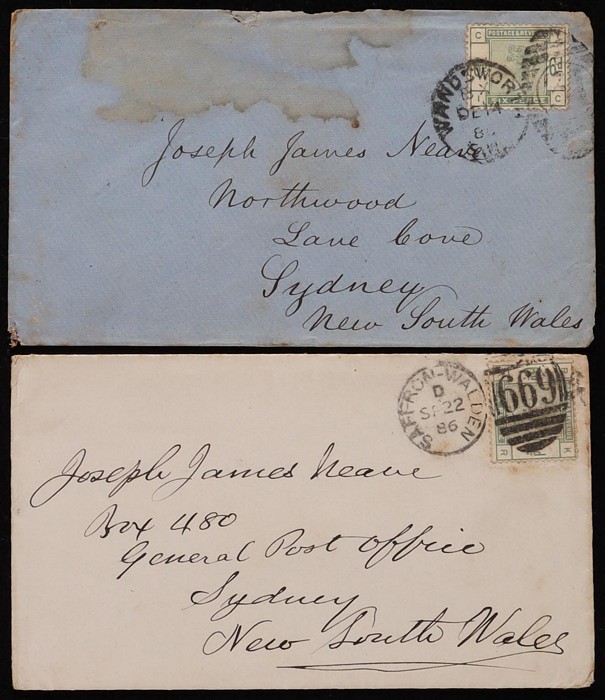 C
POSTAGE & REVE
C
SIX PENCE
C
WANDSWOR
DE 14
8
Joseph James Neave
Northwood
Lane Cove
Sydney
New South Wales
SAFFRON-WALDEN
D
SP 22
86
669
R
R
K
Joseph James Neave
Box 480
General Post Office
Sydney
New South Wales